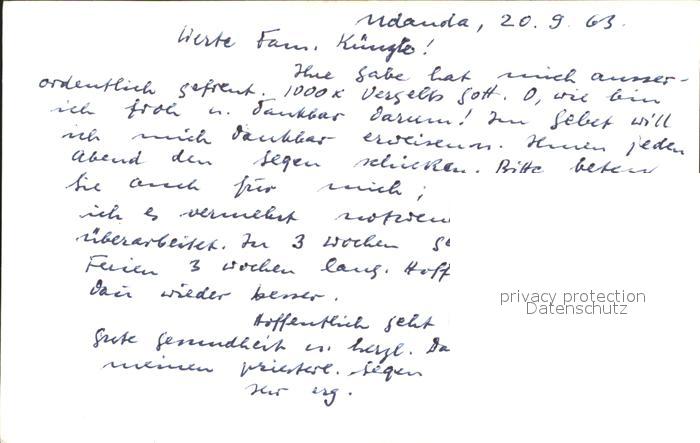 Ndanda, 20. 9. 63.
Werte Fam. Künzle!
Ihre Gabe hat mich ausser-
ordentlich gefreut. 1000 x Vergelts Gott. O, wie bin
ich froh u. dankbar darum! Im Gebet will
ich mich dankbar erweisen u. Ihnen jeden
Abend den Segen schicken. Bitte beten
Sie auch für mich;
ich es vermehrt notwen
überarbeitet. In 3 Wochen ge
Ferien 3 Wochen lang. Hoff
dan wieder besser.
Hoffentlich geht
Gute Gesundheit u. herzl. Da
meinen priesterl. Segen
Ihr erg.
privacy protection
Datenschutz